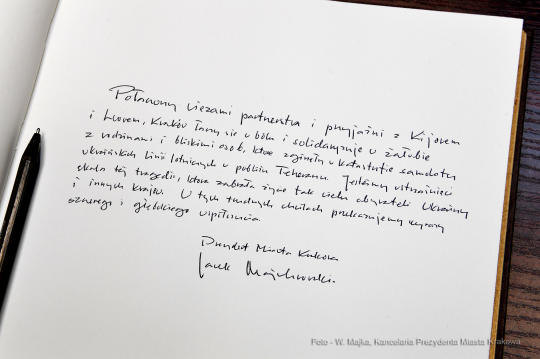 Połączony więzami partnerstwa i przyjaźni z Kijowem
i Lwowem, Kraków łączy się w bólu i solidaryzuje w żałobie
z rodzinami i bliskimi osób, które zginęły w katastrofie samolotu
ukraińskich linii lotniczych w pobliżu Teheranu. Jesteśmy wstrząśnięci
skalą tej tragedii, która zabrała życie tak wielu obywateli Ukrainy
i innych krajów. W tych trudnych chwilach przekazujemy wyrazy
szczerego i głębokiego współczucia
Prezydent Miasta Krakowa
Jacek Majchrowski
Foto - W. Majka, Kancelaria Prezydenta Miasta Krakowa